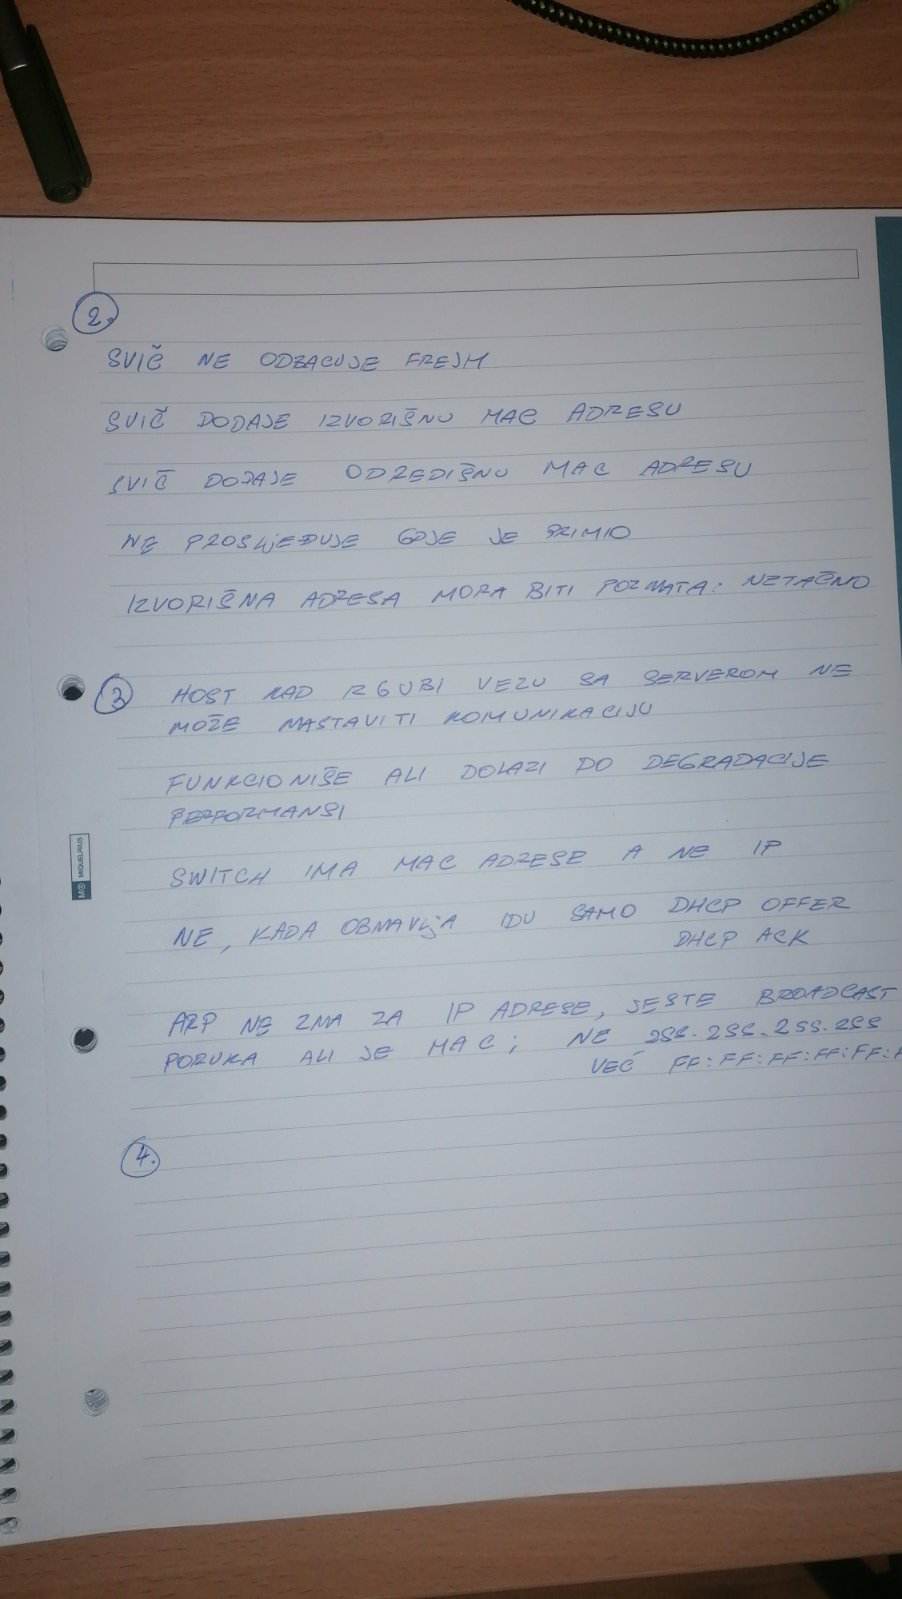 2.
SVIČ NE ODBACUJE FREJM
SVIČ DODAJE IZVORIŠNU MAC ADRESU
SVIČ DODAJE ODREDIŠNU MAC ADRESU
NE PROSLjEĐUJE GDJE JE PRIMIO
IZVORIŠNA ADRESA MORA BITI POZNATA: NETAČNO
3 HOST KAD IZGUBI VEZU SA SERVEROM NE
MOŽE NASTAVITI KOMUNIKACIJU
FUNKCIONIŠE ALI DOLAZI DO DEGRADACIJE
PERFORMANSI
SWITCH IMA MAC ADRESE A NE IP
NE, KADA OBNAVLjA IDU SAMO DHCP OFFER
DHCP ACK
ARP NE ZNA ZA IP ADRESE, JESTE BROADCAST
PORUKA ALI JE MAC; NE 255.255.255.255
VEĆ FF:FF:FF:FF:FF:
4.
MIQUELRIUS